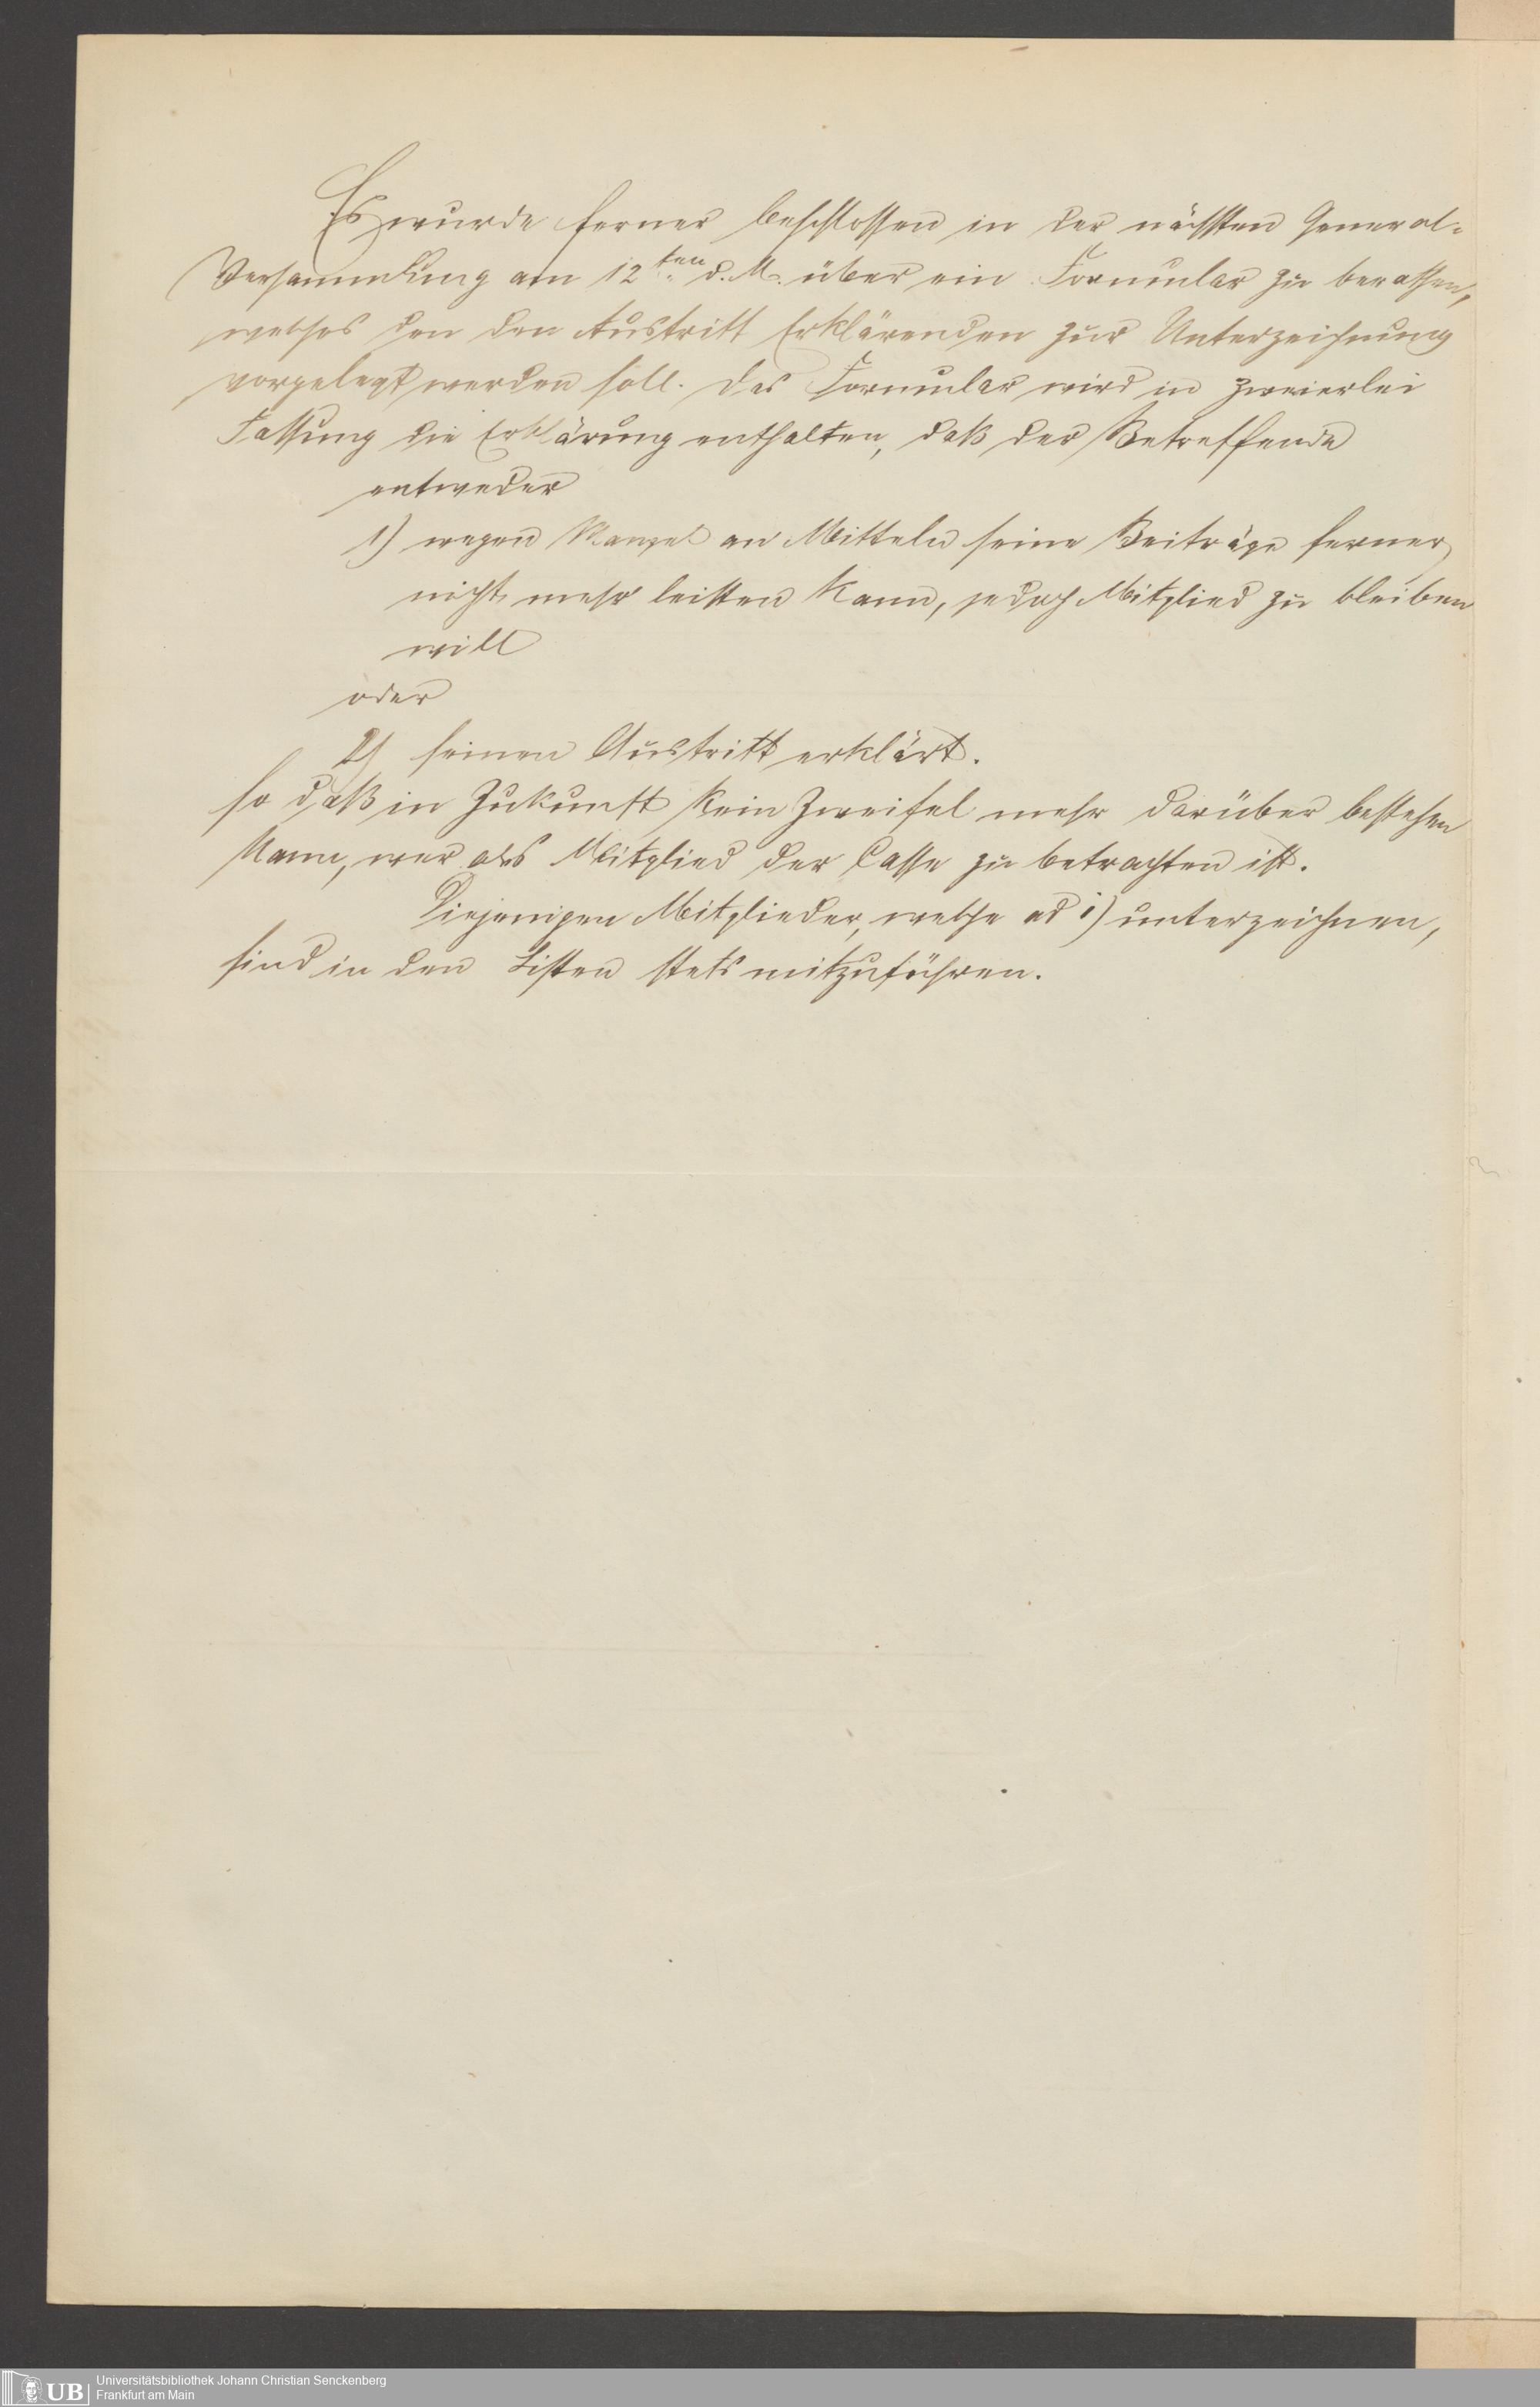 Es wurde ferner beschlossen in der nächsten General-
Versammlung am 12ten d. M. über ein Formular zu berathen,
welches den den Austritt Erklärenden zur Unterzeichnung
vorgelegt werden soll. Das Formular wird in zweierlei
Fassung die Erklärung enthalten, daß der Betreffende
entweder
1) wegen Mangel an Mitteln seine Beiträge ferner
nicht mehr leisten kann, jedoch Mitglied zu bleiben
will
oder
2) seinen Austritt erklärt.
so daß in Zukunft kein Zweifel mehr darüber bestehen
kann, wer als Mitglied der Casse zu betrachten ist.
Diejenigen Mitglieder, welche ad 1) unterzeichnen,
sind in den Listen stets mitzuführen.
UB Universitätsbibliothek Johann Christian Senckenberg
Frankfurt am Main